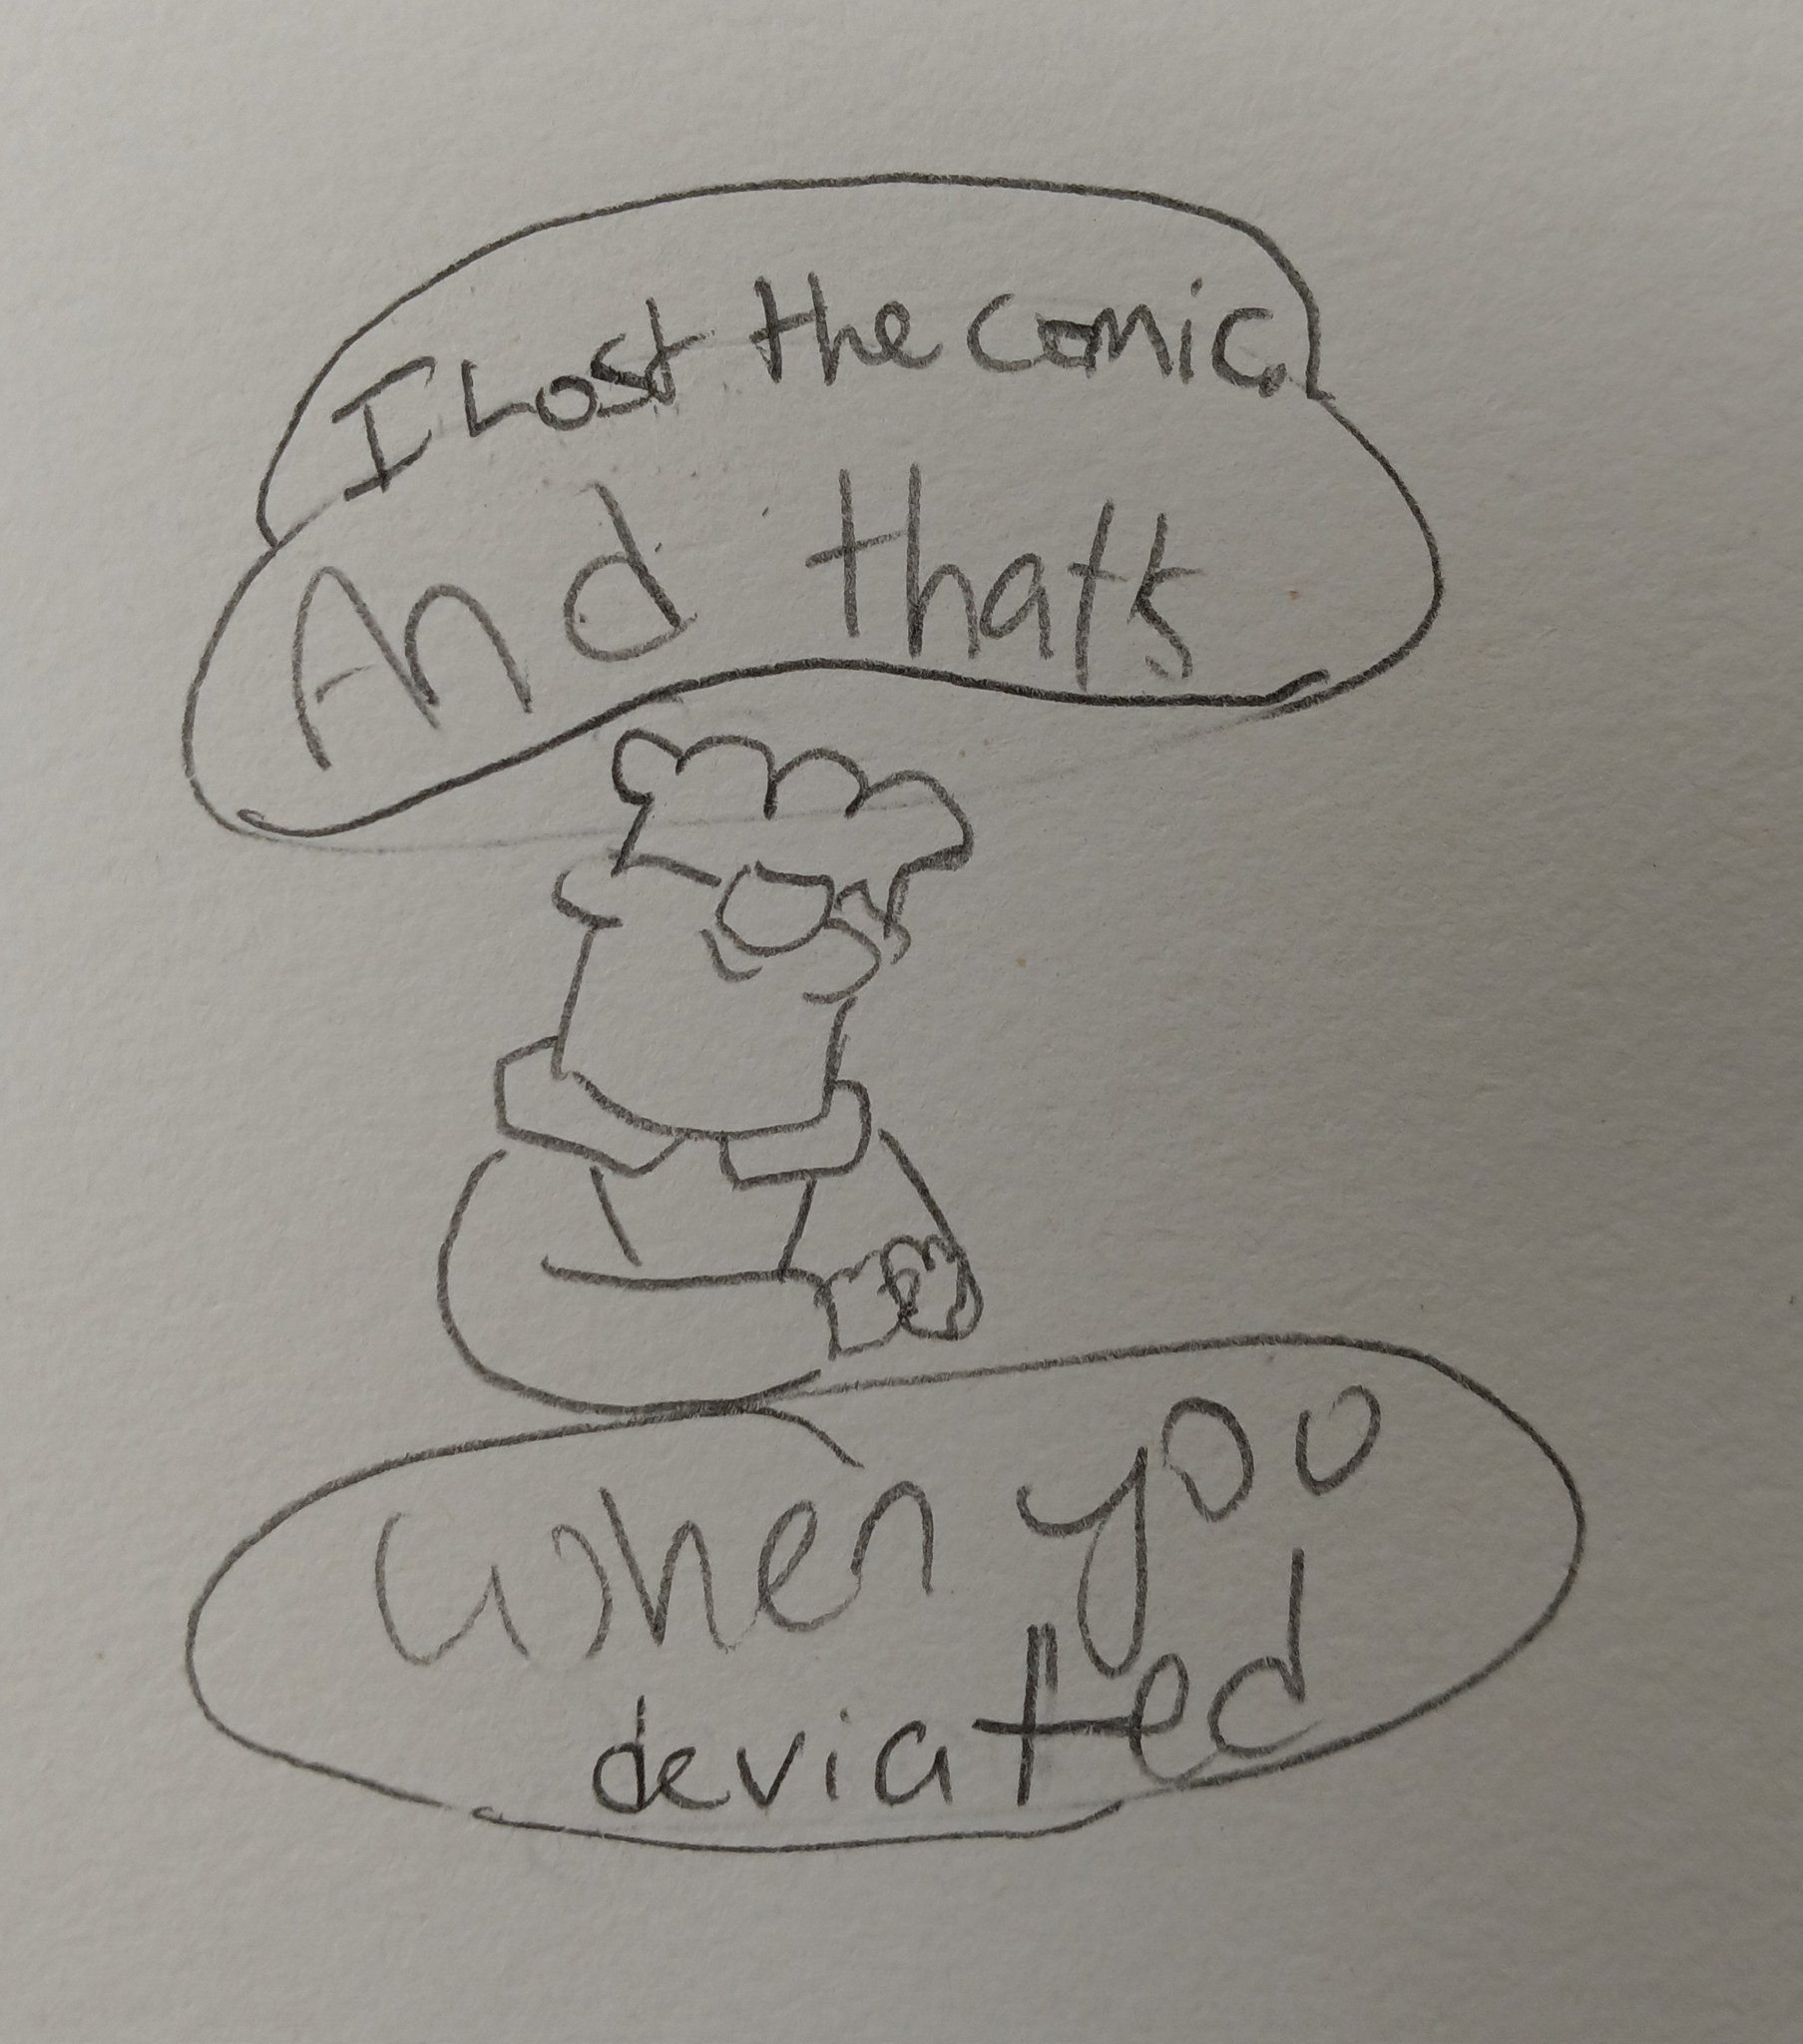 I Lost the comic.
And that's
when you
deviated